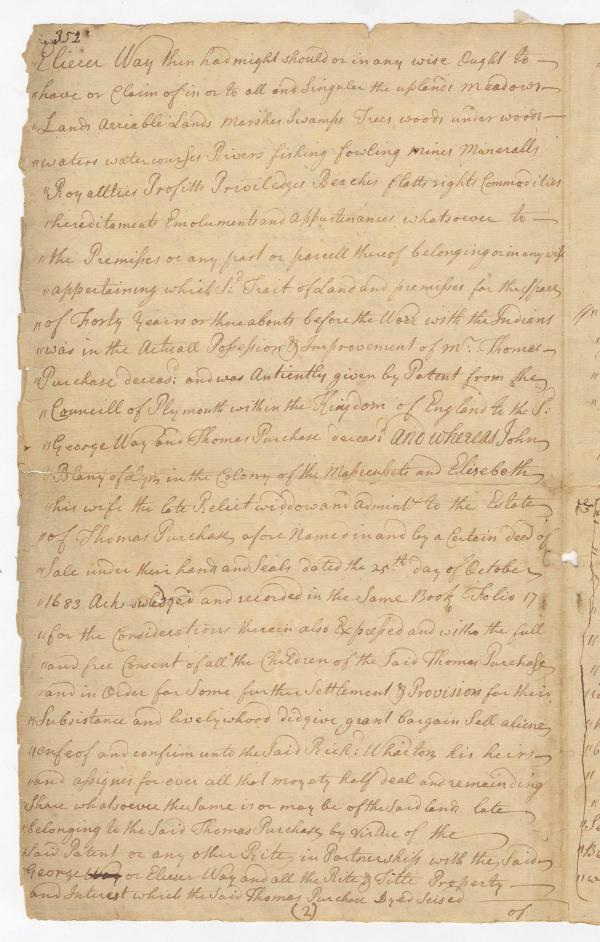 352
"Eliezer Way then had might should or in any wise Ought to —
"have or Claim of in or to all and Singular the uplands Meadows
"Lands Arriable Lands Marshes Swamps Trees woods under woods—
"waters water courses Rivers fishing fowling mines Mineralls
"Royallties Profitts Priviledges Beaches flatts rights Commodities
"hereditaments Emoluments and Appurtenances whatsoever to —
"the Premisses or any part or parcell thereof belonging or in any wise
"appertaining which Sd. Trait of Land and premisses for the space
"of Forty Years or thereabouts before the Warr with the Indians
"was in the Actuall Possession & Improvement of mr. Thomas—
"Purchase deceasd. and was Antiently given by Patent from the
"Councill of Plymouth within the Kingdom of England to the Sd.
"George Way and Thomas Purchase deceasd. And whereas John
"Blany of Lyn in the Colony of the Massecusets and Elizebeth
"his wife the late Relict widdow and Adminix. to the Estate
"of Thomas Purchase afore Named in and by a Certain deed of
"Sale under their hands and Seals dated the 25.th day of October
"1683 Acknowledged and recorded in the Same Book Folio 17
"for the Considerations therein also Expressed and with the full
"and free Consent of all the Children of the Said Thomas Purchase
"and in Order for Some further Settlement & Provision for their
"Subsistance and livelywhood did give grant bargain Sell aliene
"enfeof and confirm unto the Said Richd. Wharton his heirs
"and assignes for ever all that moyety half deal and remaind ing
"Share whatsoever the Same is or may be of the Said lands late
"belonging to the Said Thomas Purchase by virtue of the
"Said Patent or any other Rite in Partnership with the Said
George Way or Eliezer Way and all the Rite & Title Property —
and Interest which the Said Thomas Purchase Dyed Seised
(2)
of